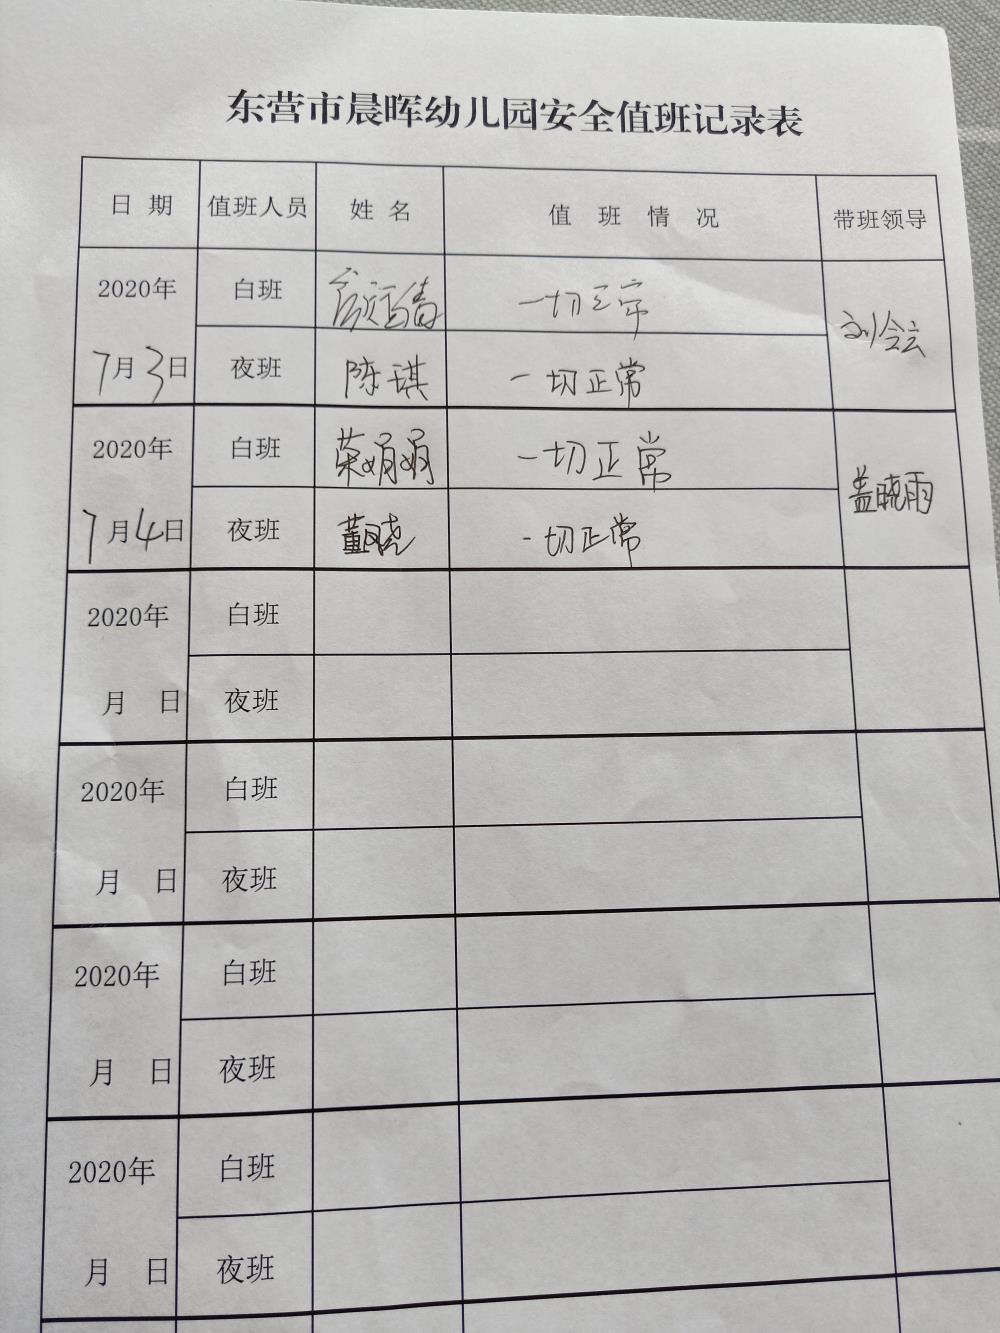 东营市晨晖幼儿园安全值班记录表
日 期 值班人员 姓 名 值 班 情 况 带班领导
2020年 白班 一切正常
刘会云
7月3日 夜班 陈琪 一切正常
2020年 白班 荣娟娟 一切正常
盖晓雨
7月4日 夜班 董晓 一切正常
2020年 白班
月 日 夜班
2020年 白班
月 日 夜班
2020年 白班
月 日 夜班
2020年 白班
月 日 夜班